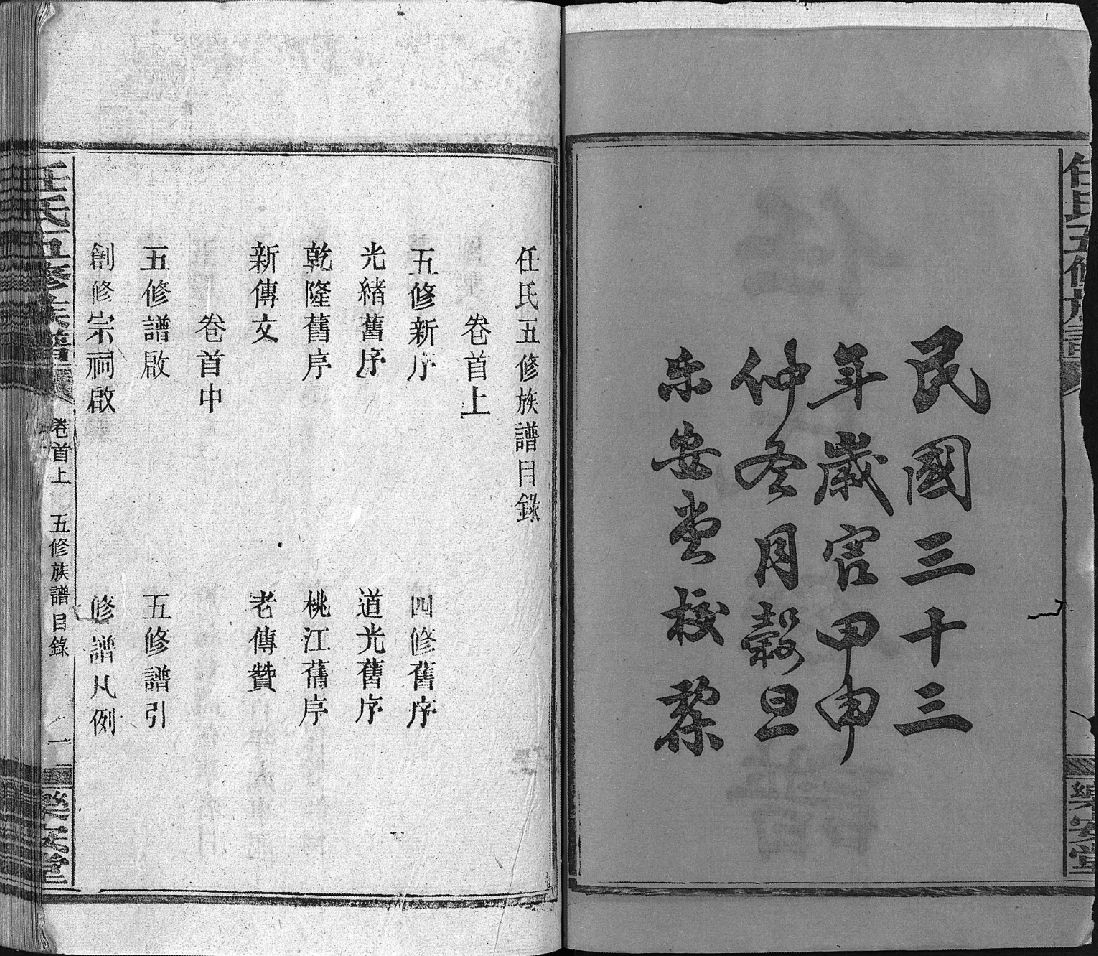 任氏五修族譜
樂安堂
民國三十三
年歲官甲申
仲冬月穀旦
乐安堂校梓
任氏五修族譜目錄
卷首上
五修新序 四修舊序
光緒舊序 道光舊序
乾隆舊序 桃江舊序
新傳文 老傳贊
卷首中
五修譜啟 五修譜引
創修宗祠啟 修譜凡例
任氏五修族譜 卷首上 五修族譜目錄 一 樂安堂